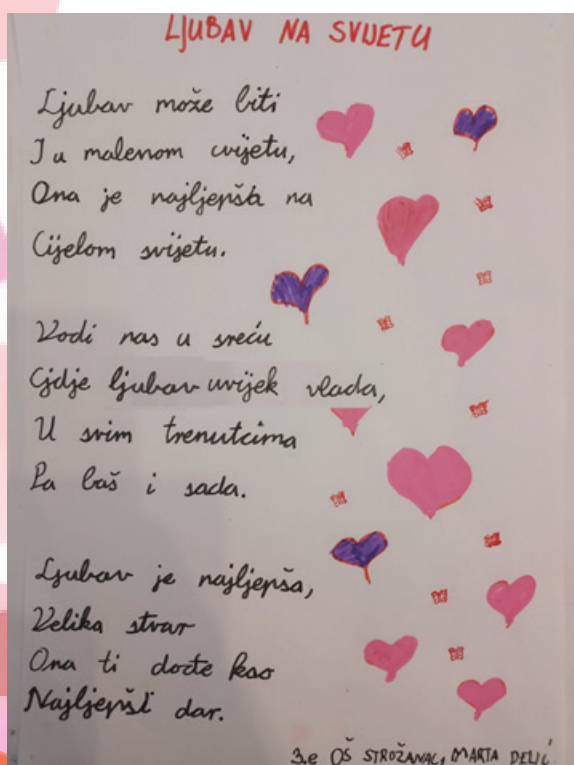 LJUBAV NA SVIJETU
Ljubav može biti
I u malenom cvijetu,
Ona je najljepša na
Cijelom svijetu.
Vodi nas u sreću
Gdje ljubav uvijek vlada,
U svim trenutcima
Pa baš i sada.
Ljubav je najljepša,
Velika stvar
Ona ti dođe kao
Najljepši dar.
3.e OŠ STROŽANAC, MARTA DELIĆ